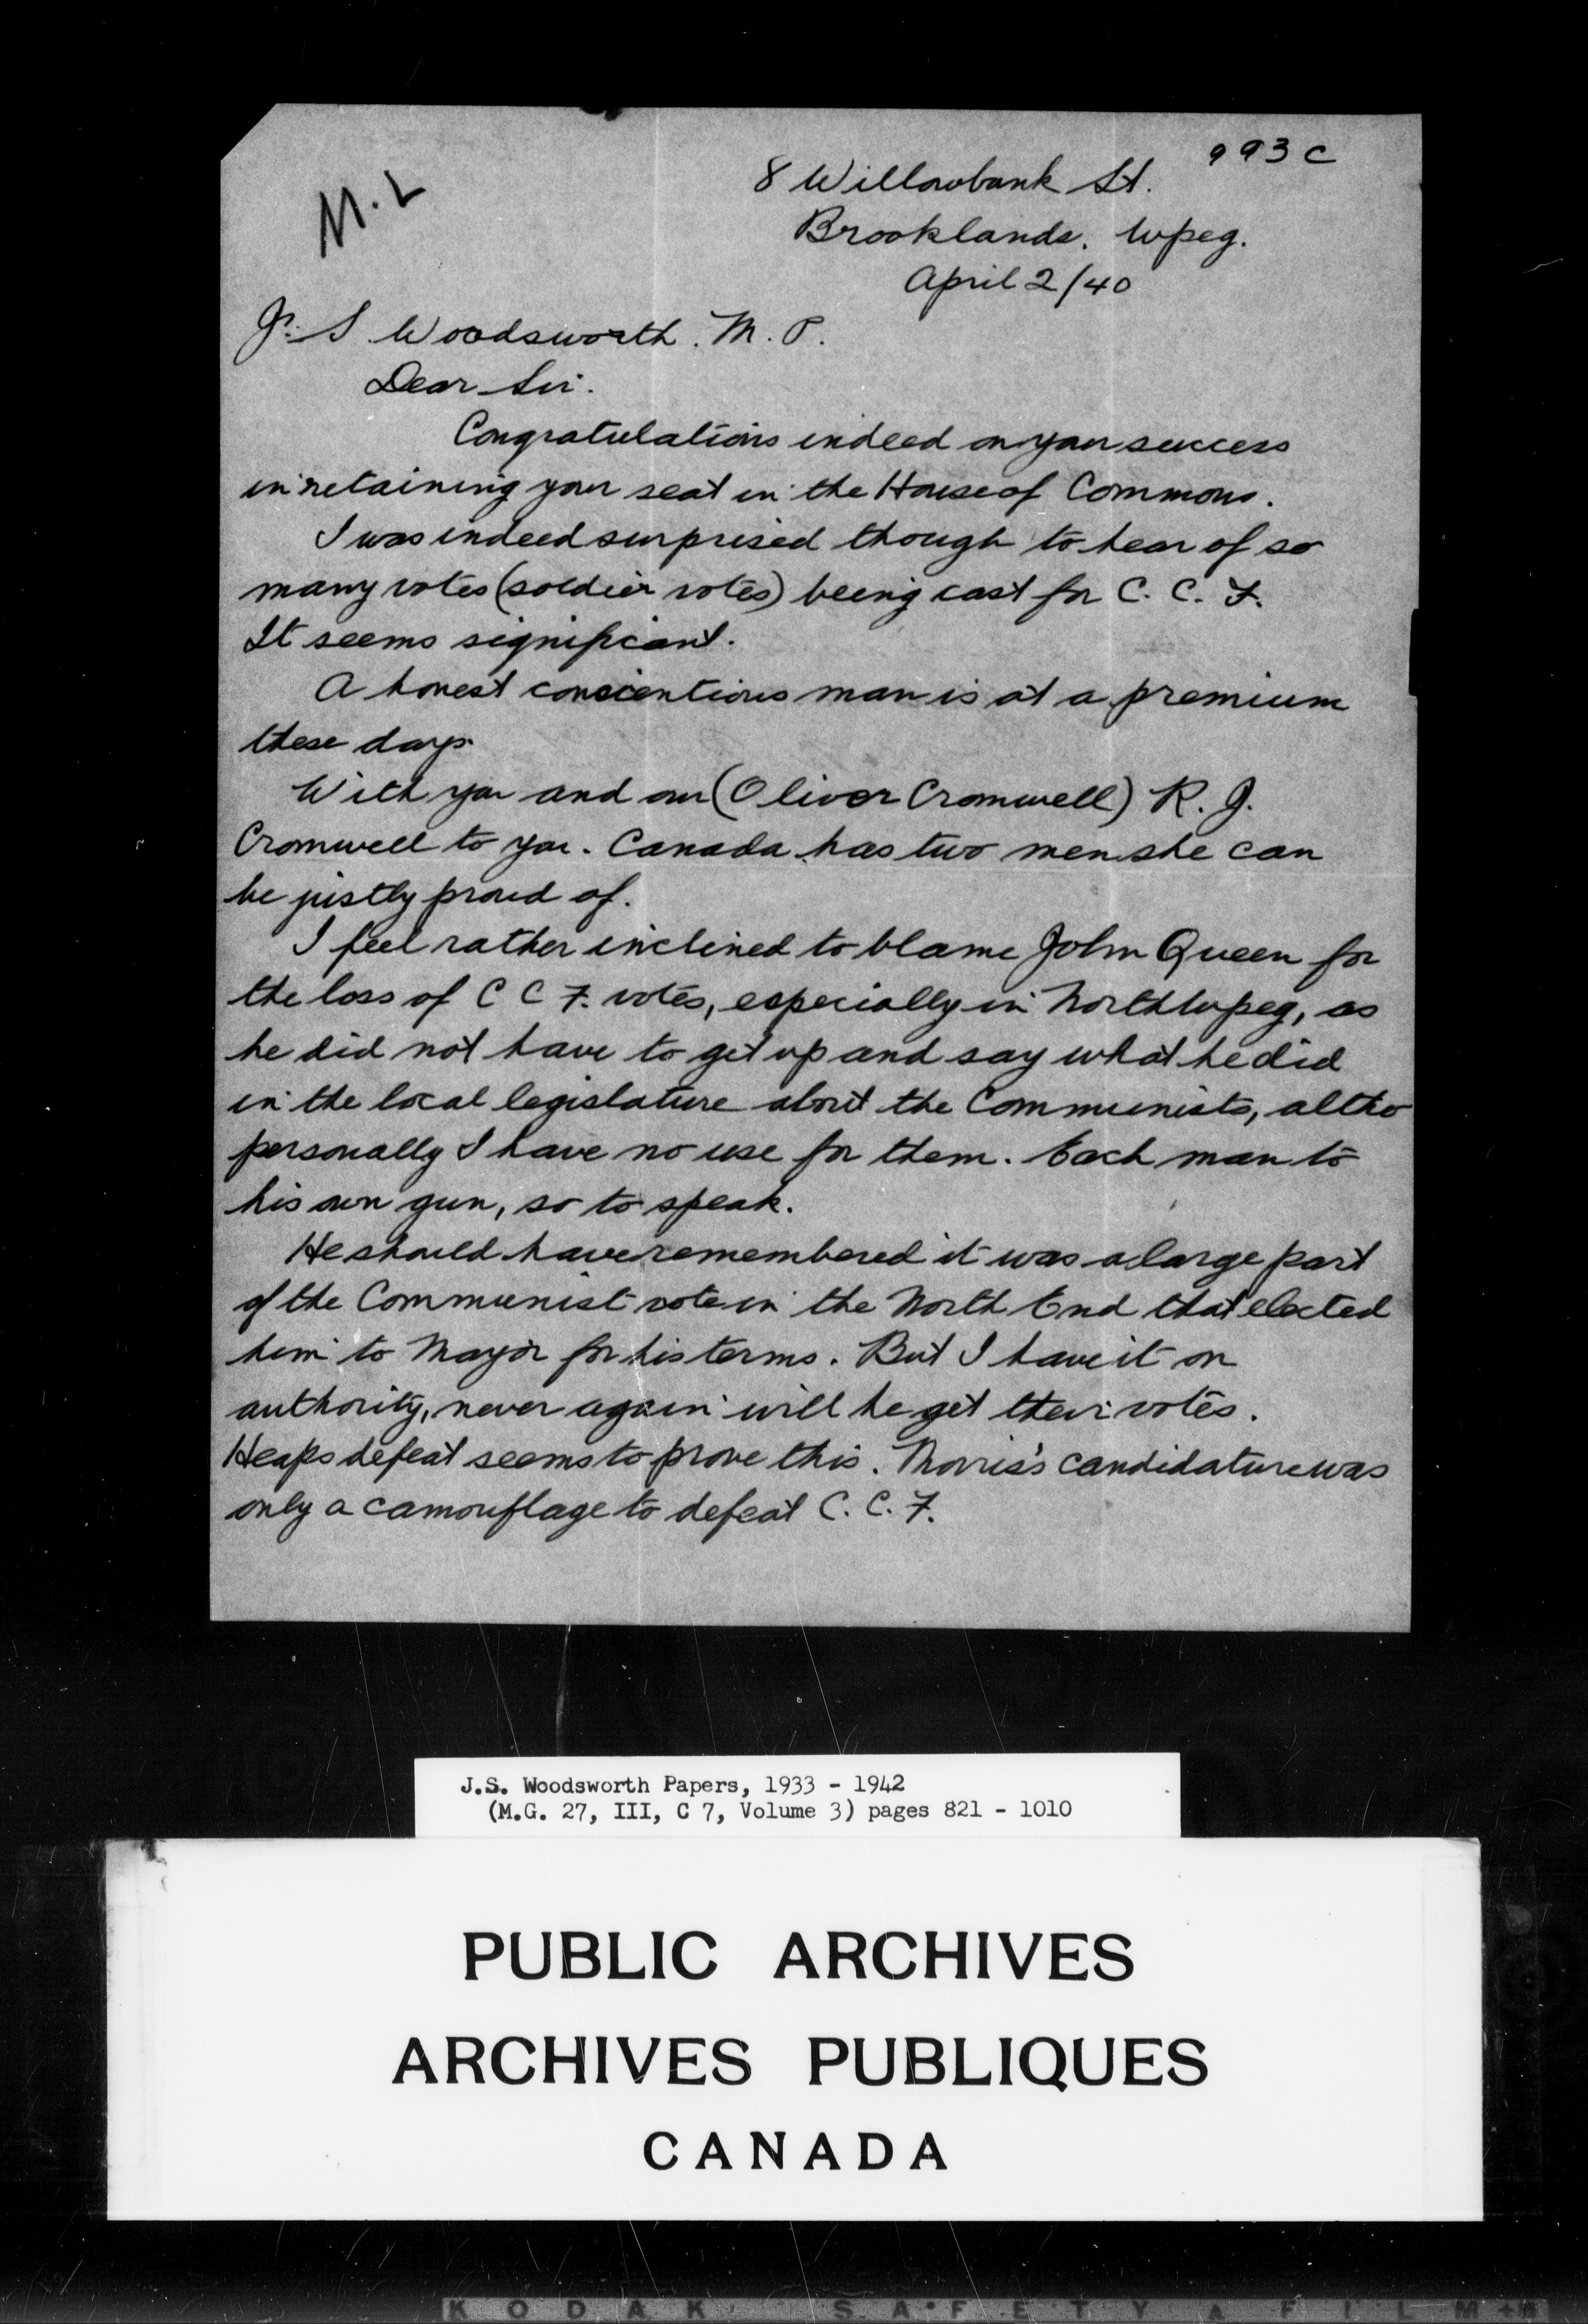 993 C
M. L
8 Willowbank St.
Brooklands. Wpeg.
April 2/40
J. S Woodsworth. M. P.
Dear Sir.
Congratulations indeed on your success
in retaining your seat in the House of Commons.
I was indeed surprised though to hear of so
many votes (soldier votes) being cast for C. C. F.
It seems significant.
A honest conscientious man is at a premium
these days.
With you and our (Oliver Cromwell) R. J.
Cromwell to you. Canada has two men she can
be justly proud of.
I feel rather inclined to blame John Queen for
the loss of C C F. votes, especially in North Wpeg, as
he did not have to get up and say what he did
in the local legislature about the Communists, altho
personally I have no use for them. Each man to
his own gun, so to speak.
He should have remembered it was a large part
of the Communist vote in the North End that elected
him to Mayor for his terms. But I have it on
authority, never again will he get their votes.
Heaps defeat seems to prove this. Morris's candidature was
only a camouflage to defeat C. C. F.
J.S. Woodsworth Papers, 1933 - 1942
(M.G. 27, III, C 7, Volume 3) pages 821 - 1010
PUBLIC ARCHIVES
ARCHIVES PUBLIQUES
CANADA
KODAK SAFETY FILM